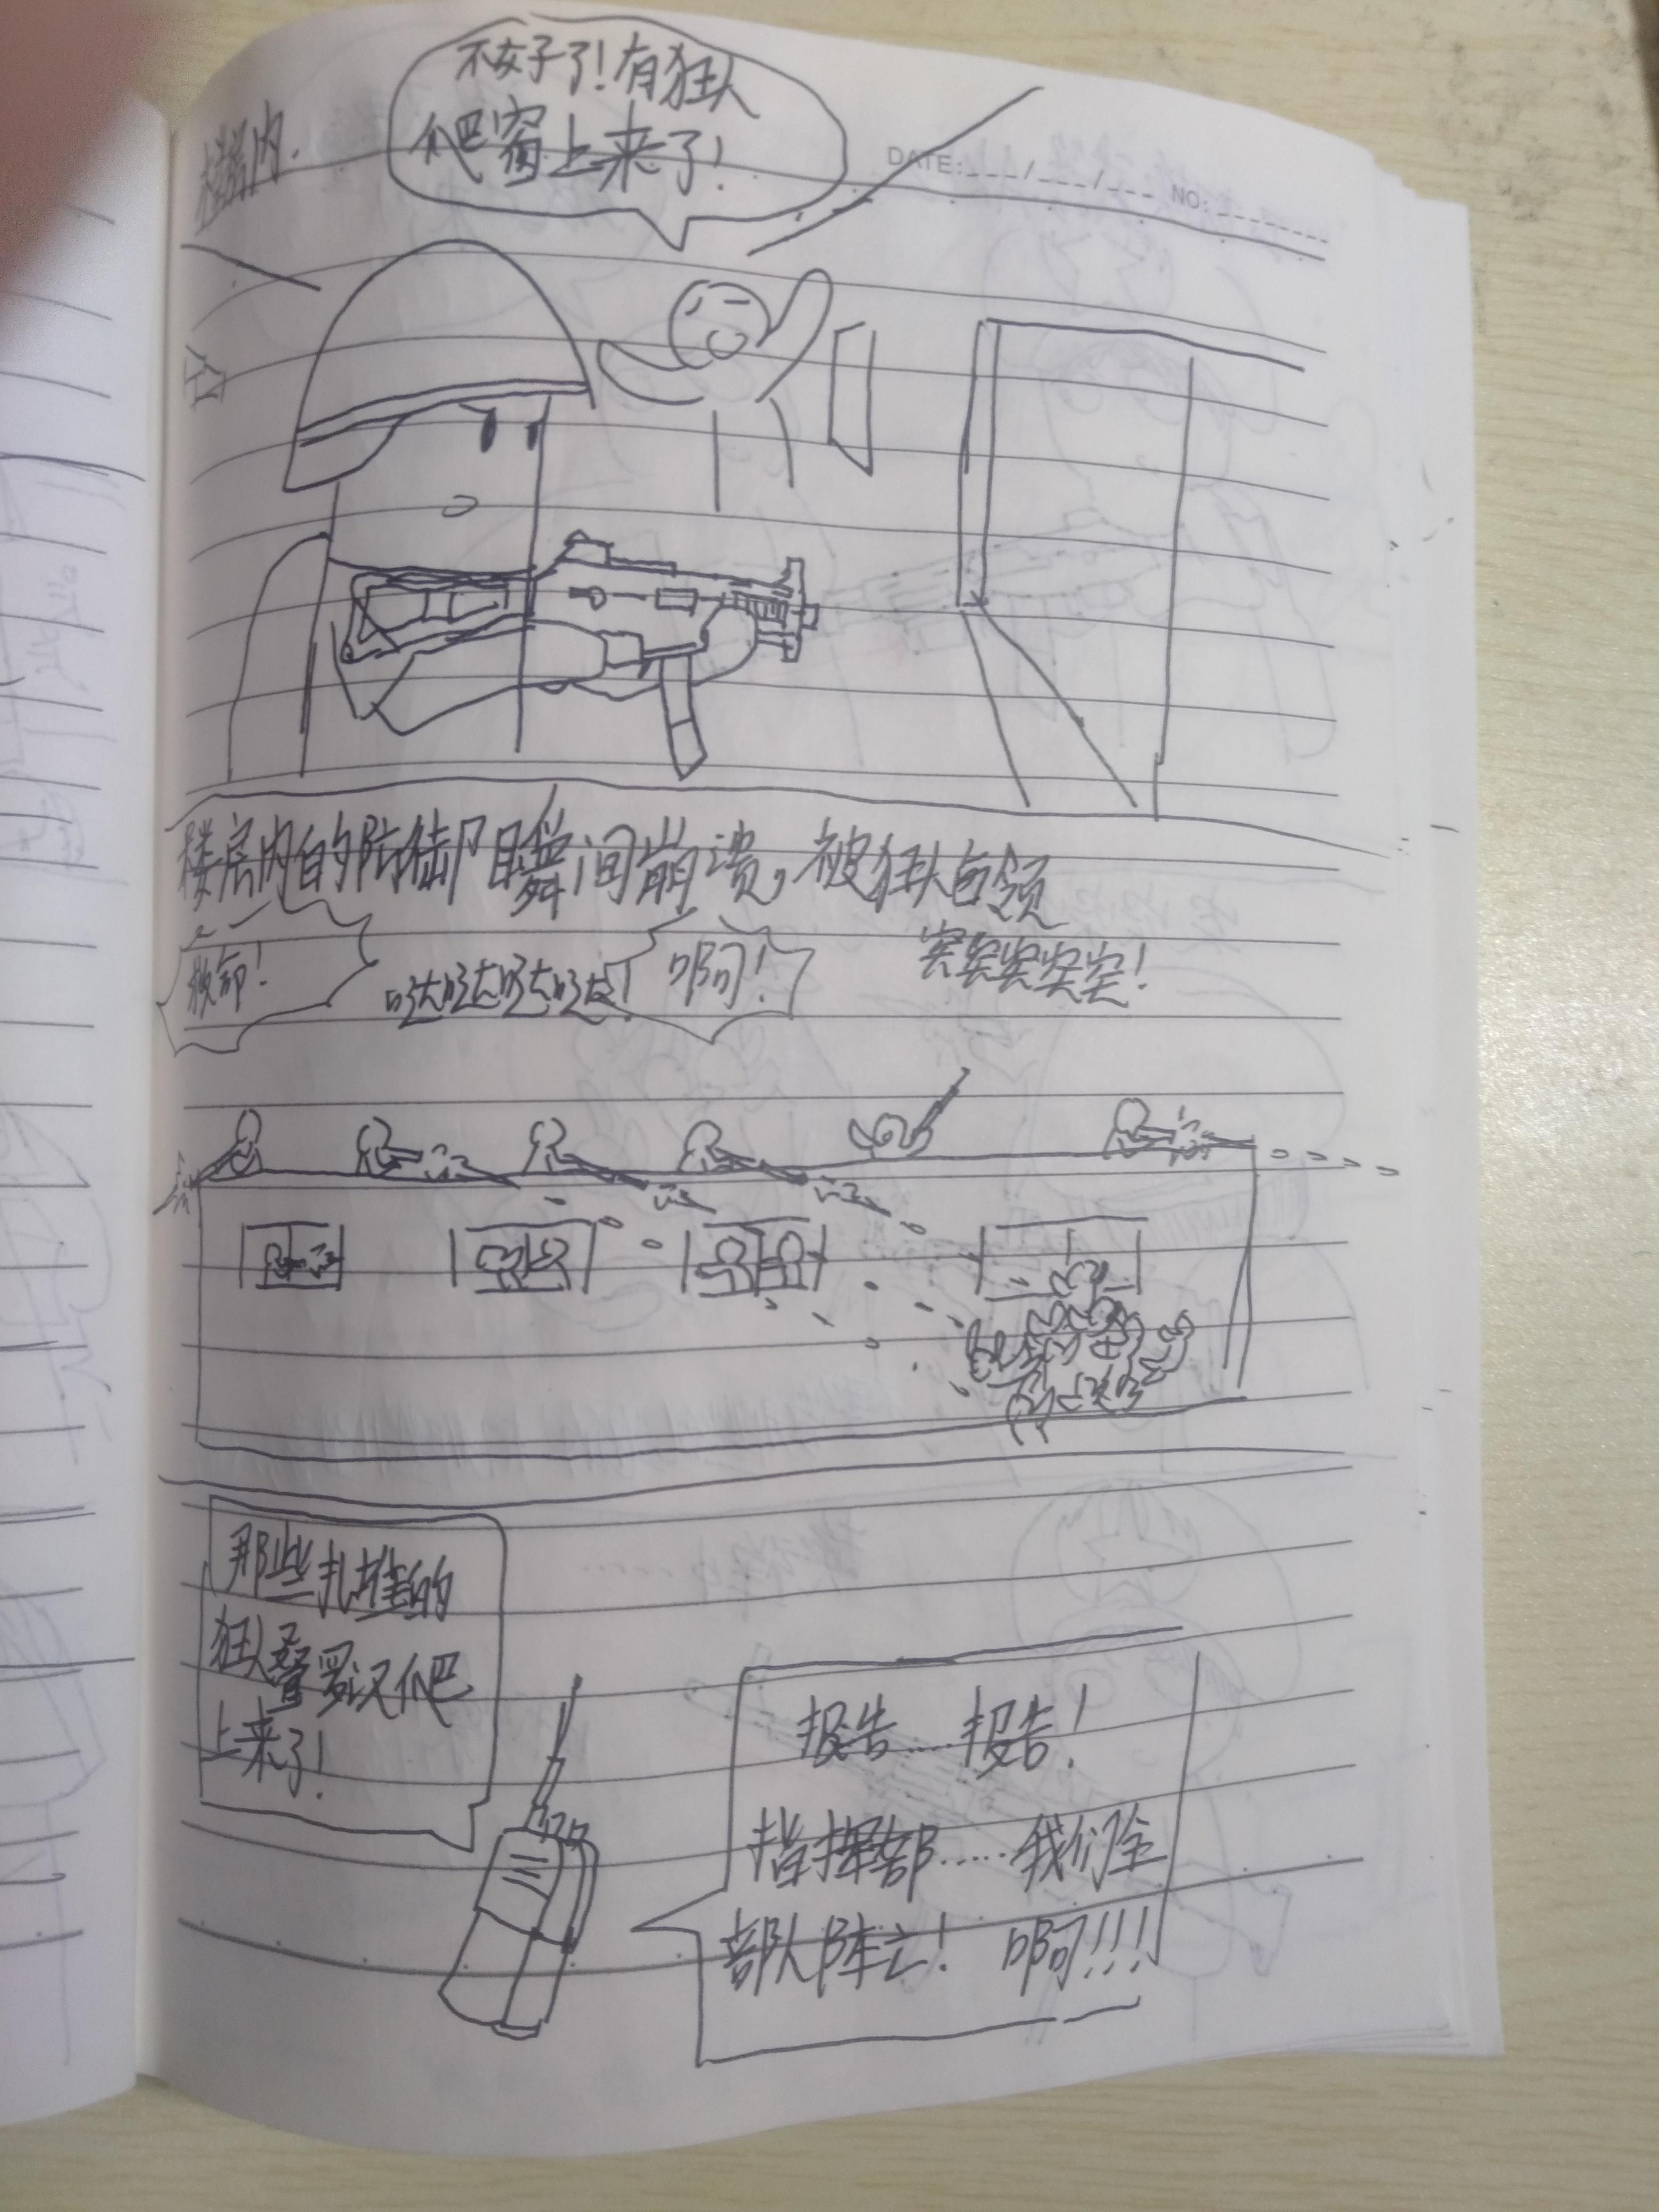 楼层内.
不好了!有狂人
爬窗上来了!
DATE:___/___/___ NO:________
楼层内的防御瞬间崩溃,被狂人占领
救命!
哒哒哒哒!
啊!
突突突突突!
那些扎堆的
狂人叠罗汉爬
上来了!
报告......报告!
指挥部......我们全
部队阵亡! 啊!!!